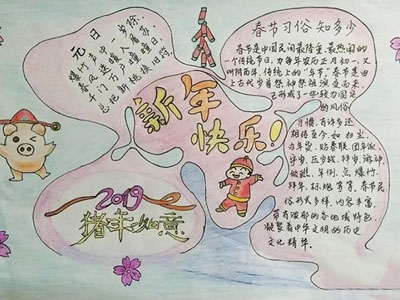 元日
爆竹声中一岁除
春风送暖入屠苏
千门万户曈曈日
总把新桃换旧符
新年
快乐!
2019
猪年如意
春节习俗知多少
春节是中国民间最隆重最热闹的
一个传统节日,为每年农历正月初一,又
叫阴历年,传统上的“年节”,春节是由
上古代岁首祈年祭祀演变而来,
已形成了一些较为固定
的风俗
习惯,有许多还
相传至今,如扫尘,
办年货,贴春联,团年饭,
守岁,压岁钱,拜岁,游神,
年例,点,爆竹,
拜年,等等,春节民
俗形式多样、内容丰富,
带有浓郁的各地域特色,
凝聚着中华文明的历史
文化精华。